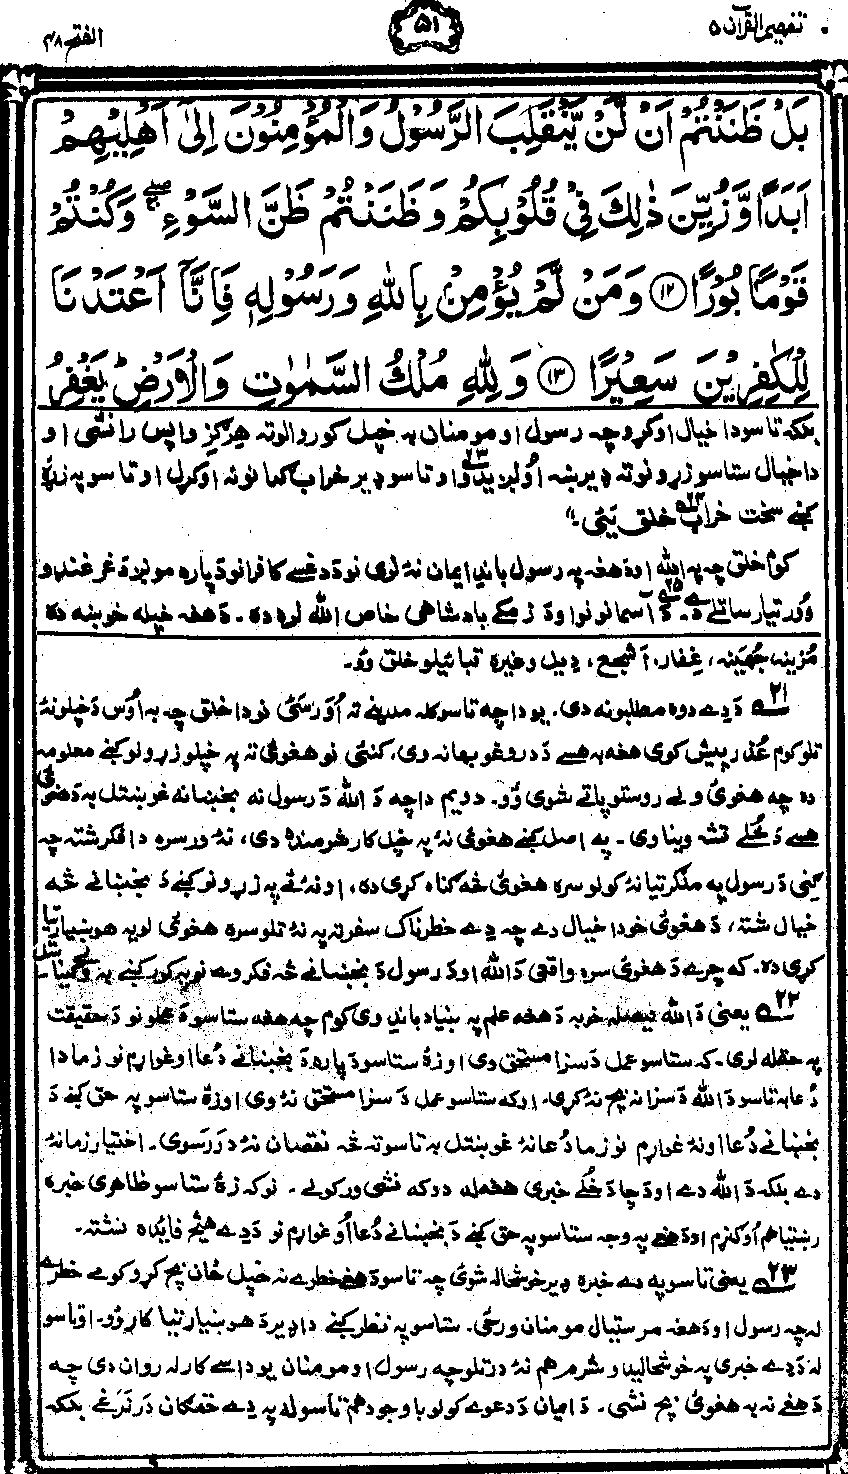 تفهيم القرآن ۵
۵۱
الفتح ۴۸
بَلْ ظَنَنْتُمْ اَنْ لَّنْ يَّنْقَلِبَ الرَّسُوْلُ وَالْمُؤْمِنُوْنَ اِلٰٓى اَهْلِيْهِمْ
اَبَدًا وَّزُيِّنَ ذٰلِكَ فِيْ قُلُوْبِكُمْ وَظَنَنْتُمْ ظَنَّ السَّوْءِ ۖۚ وَكُنْتُمْ
قَوْمًۢا بُوْرًا ﴿۱۲﴾ وَمَنْ لَّمْ يُؤْمِنْۢ بِاللّٰهِ وَرَسُوْلِهٖ فَاِنَّآ اَعْتَدْنَا
لِلْكٰفِرِيْنَ سَعِيْرًا ﴿۱۳﴾ وَلِلّٰهِ مُلْكُ السَّمٰوٰتِ وَالْاَرْضِ ؕ يَغْفِرُ
بلکه تاسو دا خيال اوکړو چه رسول او مومنان به خپل کور والو ته هرګز واپس رانشی او
دا خيال ستاسو زړونو ته ډير ښه اولږيدو ۲۳ او تاسو ډير خراب ګمانونه اوکړل او تاسو په زړۀ
کښے سخت خراب ۲۴ خلق يئی۔
کوم خلق چه په الله او د هغه په رسول باندے ايمان نۀ لری نو د دغسے کافرانو د پاره مونږ د غرغنده و
ور تيار ساتلے دے۔ ۲۵ د آسمانونو او د زمکے بادشاهی خاص الله لره ده۔ د هغه خپله خوښه ده
مُزينه، جُهينه، غفار، اشجع، ديل وغيره قبائيلو خلق وو۔
۲۱ د دے دوه مطلبونه دی۔ يو دا چه تاسو کله مدينے ته اورسئ نو دا خلق چه به اوس د خپلو نۀ
تلو کوم عُذر پيش کوی هغه به هسے د دروغو بهانه وی، کنئی نو هغوئی ته په خپلو زړونو کښے معلومه
ده چه هغوئ ولے روستو پاتے شوی وو۔ دويم دا چه د الله د رسول نه بخښنه غوښتل به د هغوئی
هسے د خُلے تشه وينا وی۔ په اصل کښے هغوئی نۀ په خپل کار شرمنده دی، نۀ ورسره دا فکر شته چه
ګنی د رسول په ملګرتيا نۀ کولو سره هغوئی څه ګناه کړی ده، او نۀ ئے په زړونو کښے د بخښنے څه
خيال شته، د هغوئی خو دا خيال دے چه دے خطرناک سفر ته په نۀ تلو سره هغوئی لويه هوښيارتيا
کړی ده۔ که چرے د هغوئی سره واقعی د الله او د رسول د بخښنے څه فکر وے نو په کور کښے به
۲۲ يعنی د الله فيصله خو به د هغه علم په بنياد باندے وی کوم چه هغه ستاسو د عملونو د حقيقت
په حقله لری۔ که ستاسو عمل د سزا مستحق دی او زۀ ستاسو د پاره د بخښنے دُعا اوغواړم نو زما دا
دُعا به تاسو د الله د سزا نه بچ نۀ کړی۔ او که ستاسو عمل د سزا مستحق نۀ وی او زۀ ستاسو په حق کښے د
بخښنے دُعا اونۀ غواړم نو زما دُعا نۀ غوښتل به تاسو ته څه نقصان نۀ در رسوی۔ اختيار زما نۀ
دے بلکه د الله دے او د چا د خُلے خبری هغه له دوکه نشی ورکولے۔ نو که زۀ ستاسو ظاهری خبره
رښتيا هم اوګنړم او د هغے په وجه ستاسو په حق کښے د بخښنے دُعا اوغواړم نو د دے هيڅ فايده نشته۔
۲۳ يعنی تاسو په دے خبره ډير خوشحاله شوئ چه تاسو د هغے خطرے نه خپل ځان بچ کړو کومے خطرے
له چه رسول او د هغه مرستيال مومنان ورتلی۔ ستاسو په نظر کښے دا ډير د هوښيارتيا کار وو۔ او تاسو
له د دے خبری په خوشحاليدو شرم هم نۀ درتلو چه رسول او مومنان يو داسے کار له روان دی چه
د هغے نه به هغوئی بچ نشی۔ د ايمان د دعوے کولو باوجود هم تاسو له په دے خفګان درنغے بلکه